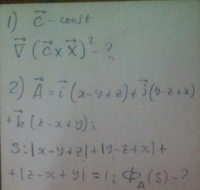 1) c⃗ - const
∇⃗ (c⃗ × x⃗)² - ?
2) A⃗ = i⃗ (x-y+z) + j⃗ (y-z+x)
+ k⃗ (z-x+y);
S: |x-y+z| + |y-z+x| +
+ |z-x+y| = 1; Φ_A⃗ (S) - ?